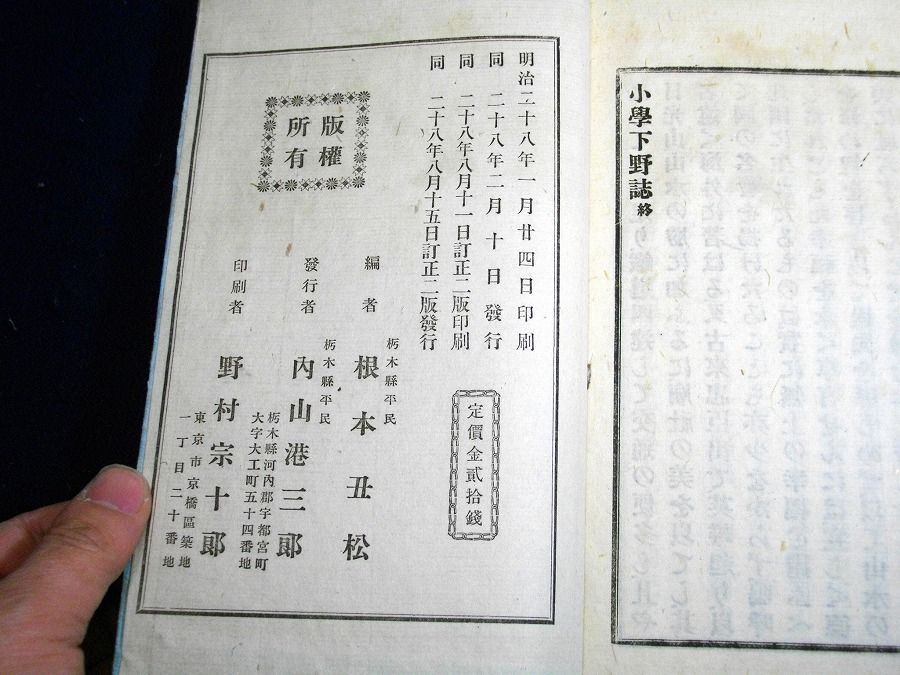 小學下野誌 終
明治二十八年一月廿四日印刷
同 二十八年二月十日發行
同 二十八年八月十一日訂正二版印刷
同 二十八年八月十五日訂正二版發行
定價金貳拾錢
版權
所有
編者
栃木縣平民
根本丑松
發行者
栃木縣平民
內山港三郎
栃木縣河內郡宇都宮町
大字大工町五十四番地
印刷者
野村宗十郎
東京市京橋區築地
一丁目二十番地